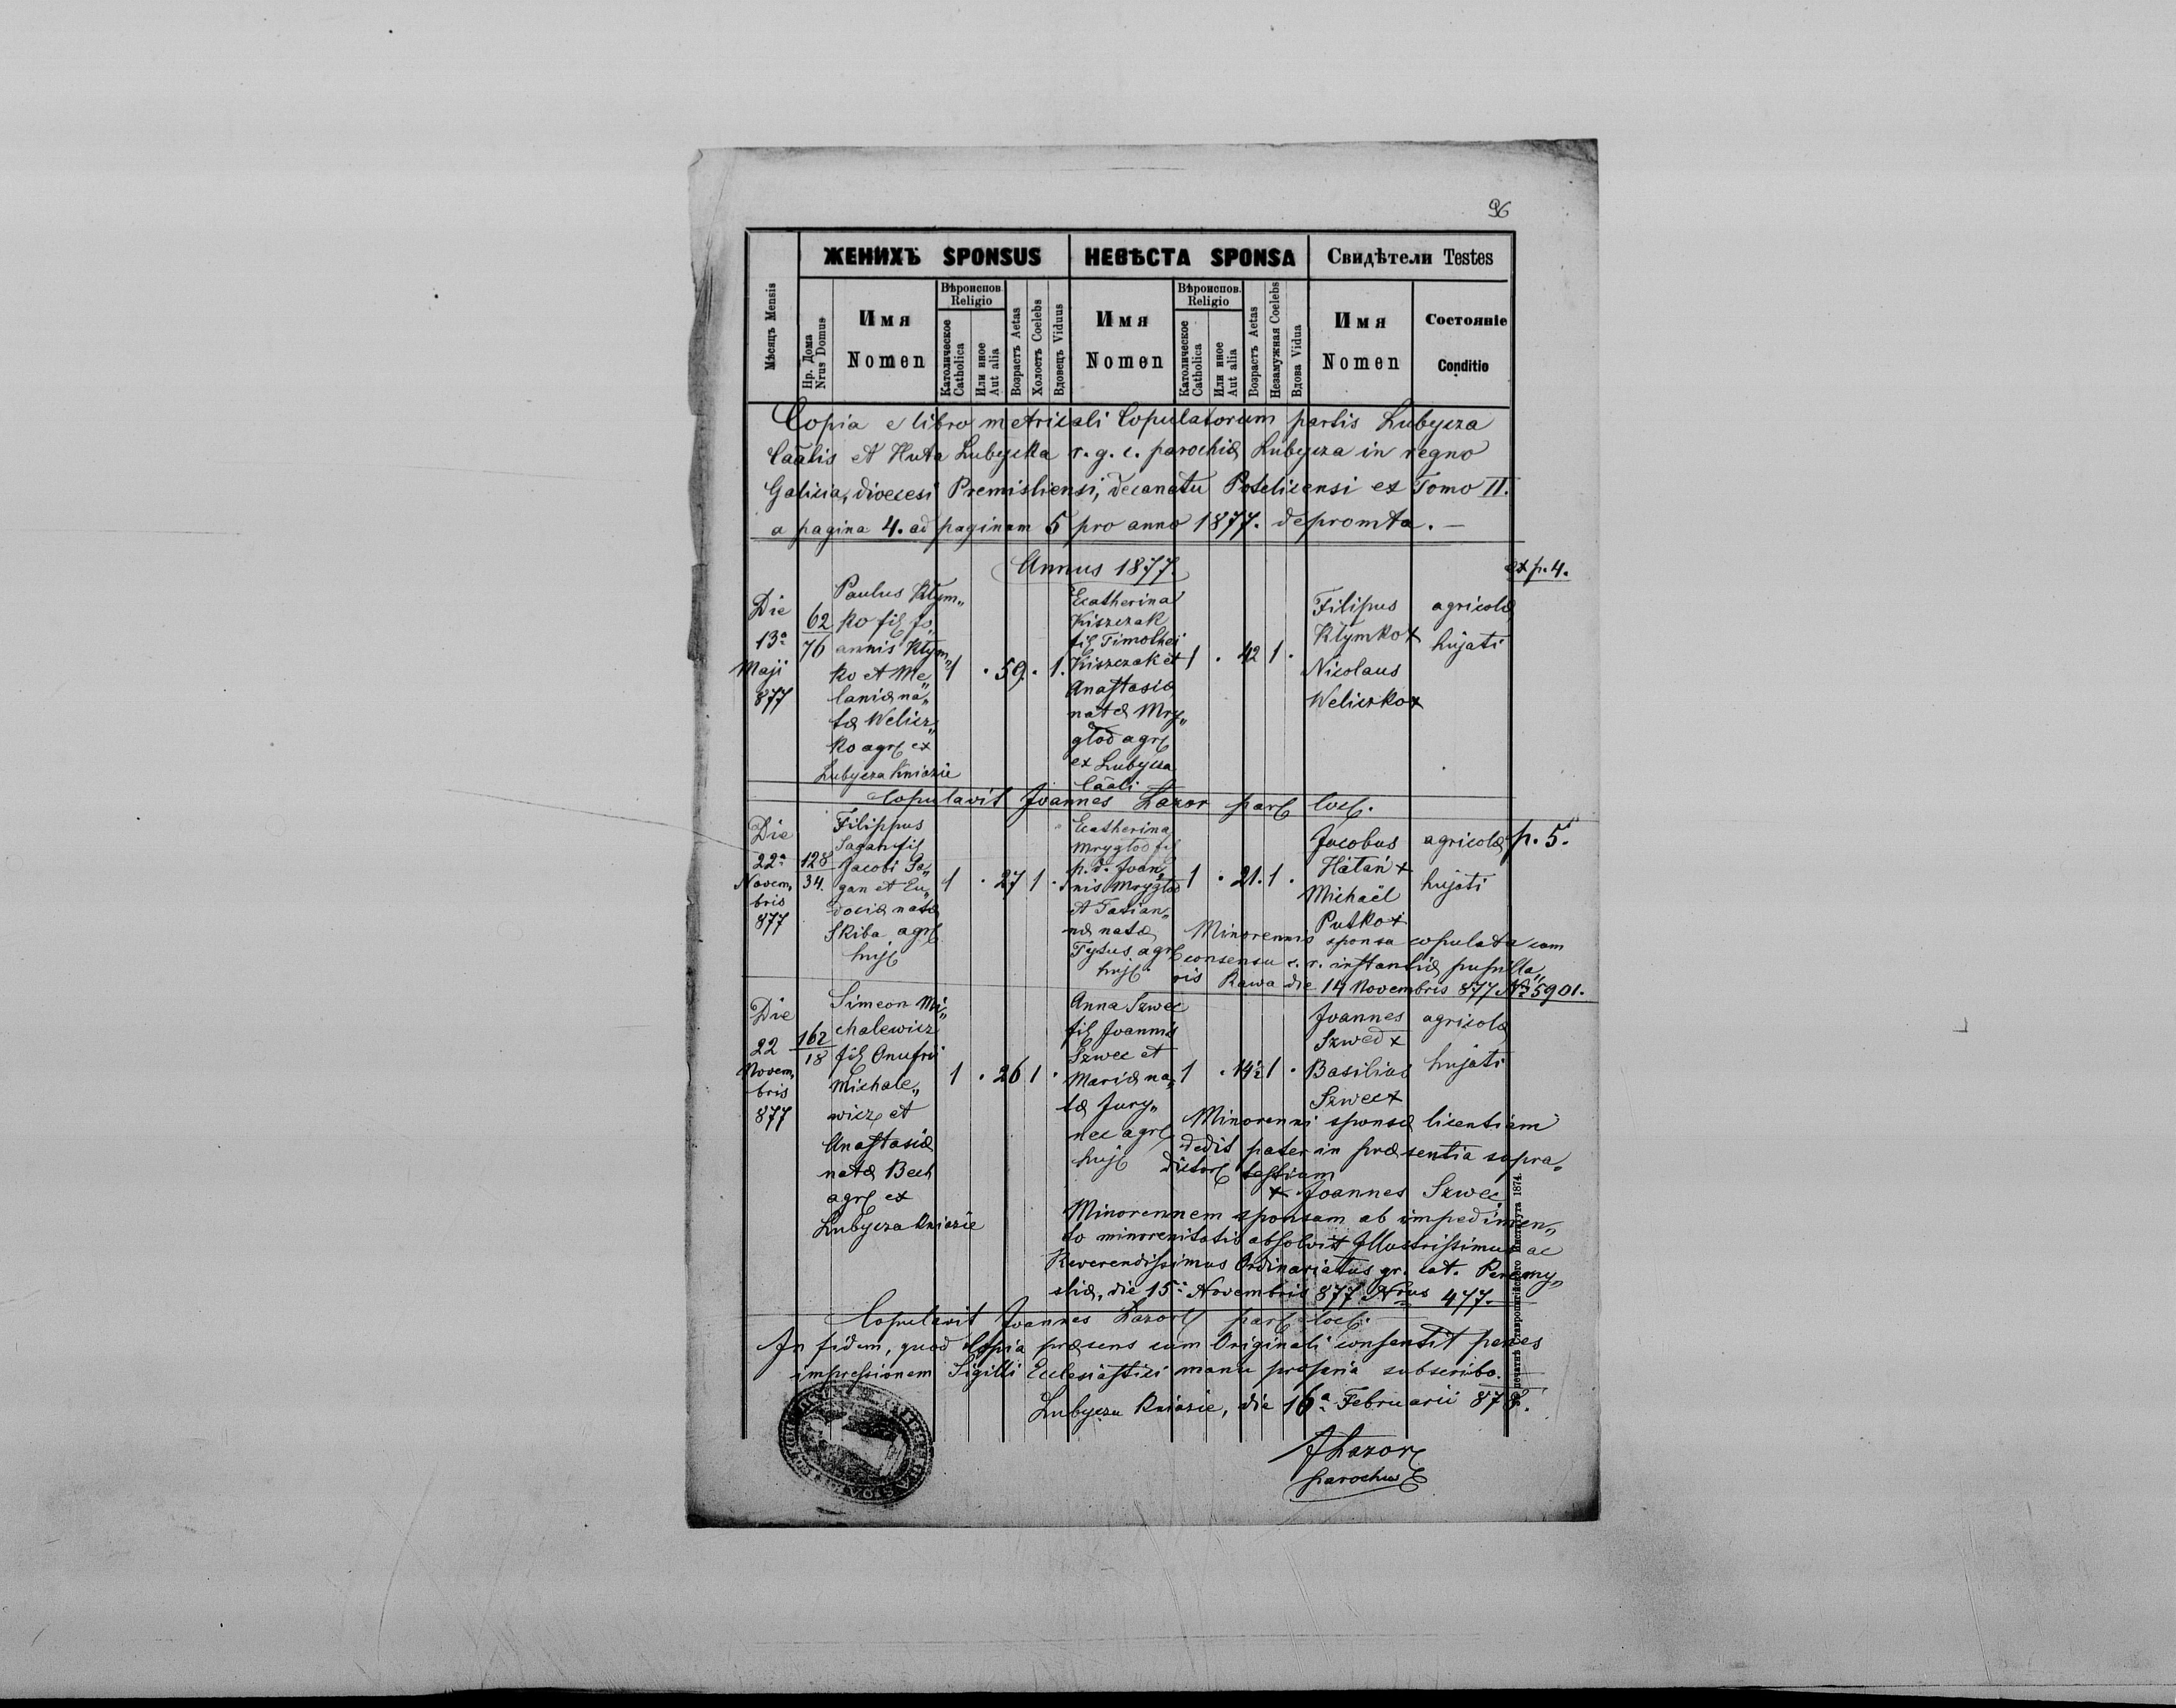 96
ЖЕНИХЪ SPONSUS
НЕВѢСТА SPONSA
Свидѣтели Testes
Мѣсяцъ Mensis
Нр. Дома
Nrus Domus
Имя
Nomen
Вѣроиспов.
Religio
Католическое
Catholica
Или иное
Aut alia
Возрастъ Aetas
Холостъ Coelebs
Вдовецъ Viduus
Имя
Nomen
Вѣроиспов.
Religio
Католическое
Catholica
Или иное
Aut alia
Возрастъ Aetas
Незамужная Coelebs
Вдова Vidua
Имя
Nomen
Состоянiе
Conditio
Copia e libro metricali Copulatorum partis Lubycza
Caālis et Huta Lubycka r. g. c. parochiæ Lubycza in regno
Galiciæ, diœcesi Premisliensi, decanatu Potelicensi ex Tomo II.
a pagina 4. ad paginam 5 pro anno 1877. depromta. —
Annus 1877.
ex p. 4.
Die
13a
Maji
877
62
76
Paulus Kłym„
ko fil Jo„
annis Kłym„
ko et Me„
laniæ na„
tæ Welicz„
ko agr ex
Lubycza Kniazie
1 . 59 . 1.
Ecatherina
Kiszczak
fil Timothei
Kiszczak et
Anastasiæ
natæ Mry„
głod agr
ex Lubycza
Caāli
1 . 42 1 .
Filipus
Kłymko x
Nicolaus
Weliczko x
agricolæ
hujati
Copulavit Joannes Lazor par loc.
Die
22a
Novem„
bris
877
128
34.
Filippus
Sagan fil
Jacobi Sa„
gan et Eu„
dociæ natæ
Skiba agr
huj
1 . 27 1 .
Ecatherina
Mrygłod fil
p. d. Joan„
nis Mrygłod
et Tatian„
næ natæ
Tyzus agr
huj
1 . 21. 1 .
Jacobus
Hatan x
Michaël
Putko x
agricolæ
hujati
p. 5.
Minorennis sponsa copulata cum
consensu c. r. instantiæ pupilla„
ris Rawa die 14 Novembris 877 No 5901.
Die
22
Novem„
bris
877
162
18
Simeon Mi„
chalewicz
fil Onufrii
Michale„
wicz et
Anastasiæ
natæ Bech
agr ex
Lubycza Kniazie
1 . 26 1 .
Anna Szwec
fil Joannis
Szwec et
Mariæ na„
tæ Jury„
nec agr
huj
1 . 14½ 1 .
Joannes
Szwed x
Basilius
Szwec x
agricolæ
hujati
Minorenni sponsæ licentiam
dedit pater in præsentia supra„
dictor testium
x Joannes Szwec
Minorennem sponsam ab impedimen„
to minorenitatis absolvit Illustrissimus ac
Reverendissimus Ordinariatus gr. cat. Peremy„
sliæ, die 15. Novembris 877 Nrus 477.
Copulavit Joannes Lazor par loc.
In fidem, quod Copia præsens cum Originali consentit penes
impressionem Sigilli Ecclesiastici manu propria subscribo.
Lubycza Kniazie, die 16a Februarii 878.
JLazor
parochus
Института 1874.